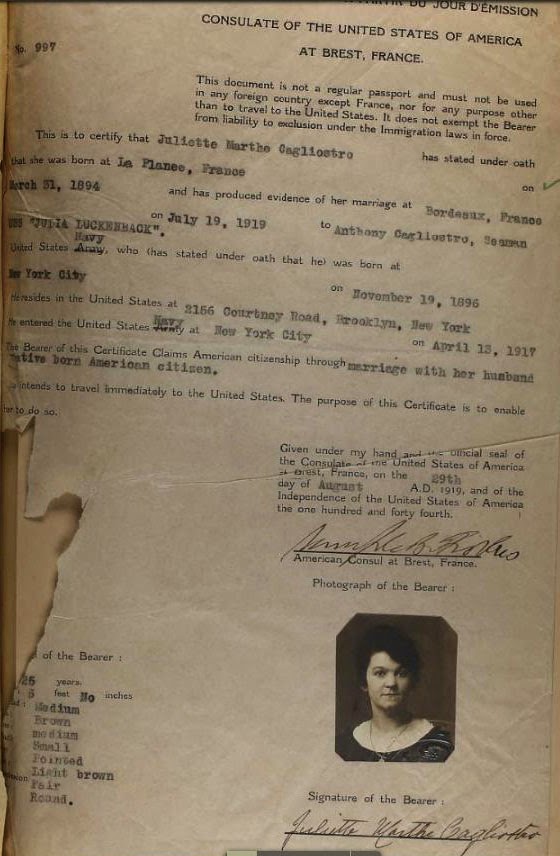 PARTIR DU JOUR D'ÉMISSION
CONSULATE OF THE UNITED STATES OF AMERICA
AT BREST, FRANCE.
No. 997
This document is not a regular passport and must not be used
in any foreign country except France, nor for any purpose other
than to travel to the United States. It does not exempt the Bearer
from liability to exclusion under the Immigration laws in force.
This is to certify that Juliette Marthe Cagliostro has stated under oath
that she was born at La Planee, France on
March 31, 1894 and has produced evidence of her marriage at Bordeaux, France
on July 19, 1919 to Anthony Cagliostro, Seaman
USS "JULIA LUCKENBACK".
Navy
United States Army, who (has stated under oath that he) was born at
New York City on November 19, 1896
He resides in the United States at 2156 Courtney Road, Brooklyn, New York
Navy
He entered the United States Army at New York City on April 13, 1917
The Bearer of this Certificate Claims American citizenship through marriage with her husband
native born American citizen.
intends to travel immediately to the United States. The purpose of this Certificate is to enable
her to do so.
Given under my hand and the official seal of
the Consulate of the United States of America
at Brest, France, on the 29th
day of August A.D. 1919, and of the
Independence of the United States of America
the one hundred and forty fourth.
American Consul at Brest, France.
Photograph of the Bearer :
of the Bearer :
25 years.
5 feet No inches
Medium
Brown
medium
Small
Pointed
Light brown
Fair
Round.
Signature of the Bearer :
Juliette Marthe Cagliostro